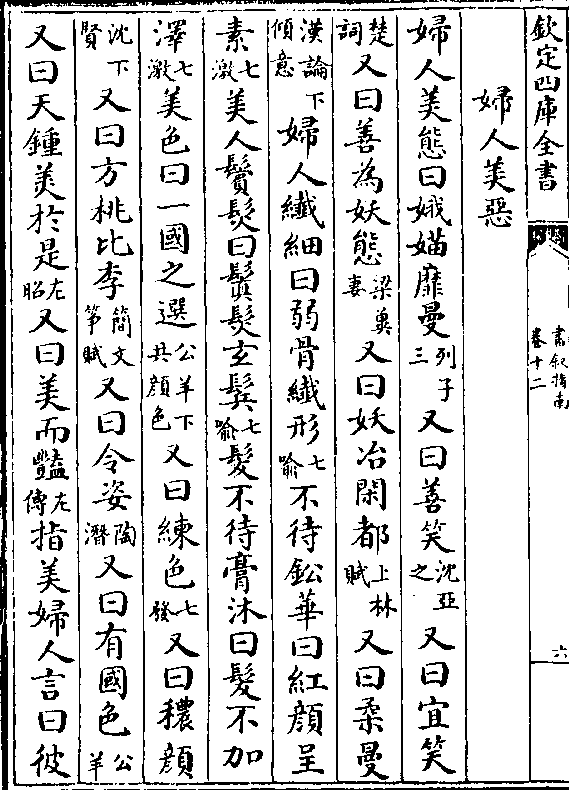 欽定四庫全書
書叙指南
卷十二
六
婦人美惡
婦人美態曰娥媌靡曼列子三又曰善笑沈亞之又曰宜笑
楚詞又曰善為妖態梁冀妻又曰妖冶閑都上林賦又曰柔曼
漢論下傾意婦人纖細曰弱骨纖形七喻不待鉛華曰紅顏呈
素七激美人鬢髮曰鬒髮玄鬂七喻髮不待膏沐曰髮不加
澤七激美色曰一國之選公羊下共顏色又曰練色七發又曰穠顏
沈下賢又曰方桃比李簡文箏賦又曰令姿陶潛又曰有國色公羊
又曰天鍾美於是左昭又曰美而豔左傳指美婦人言曰彼